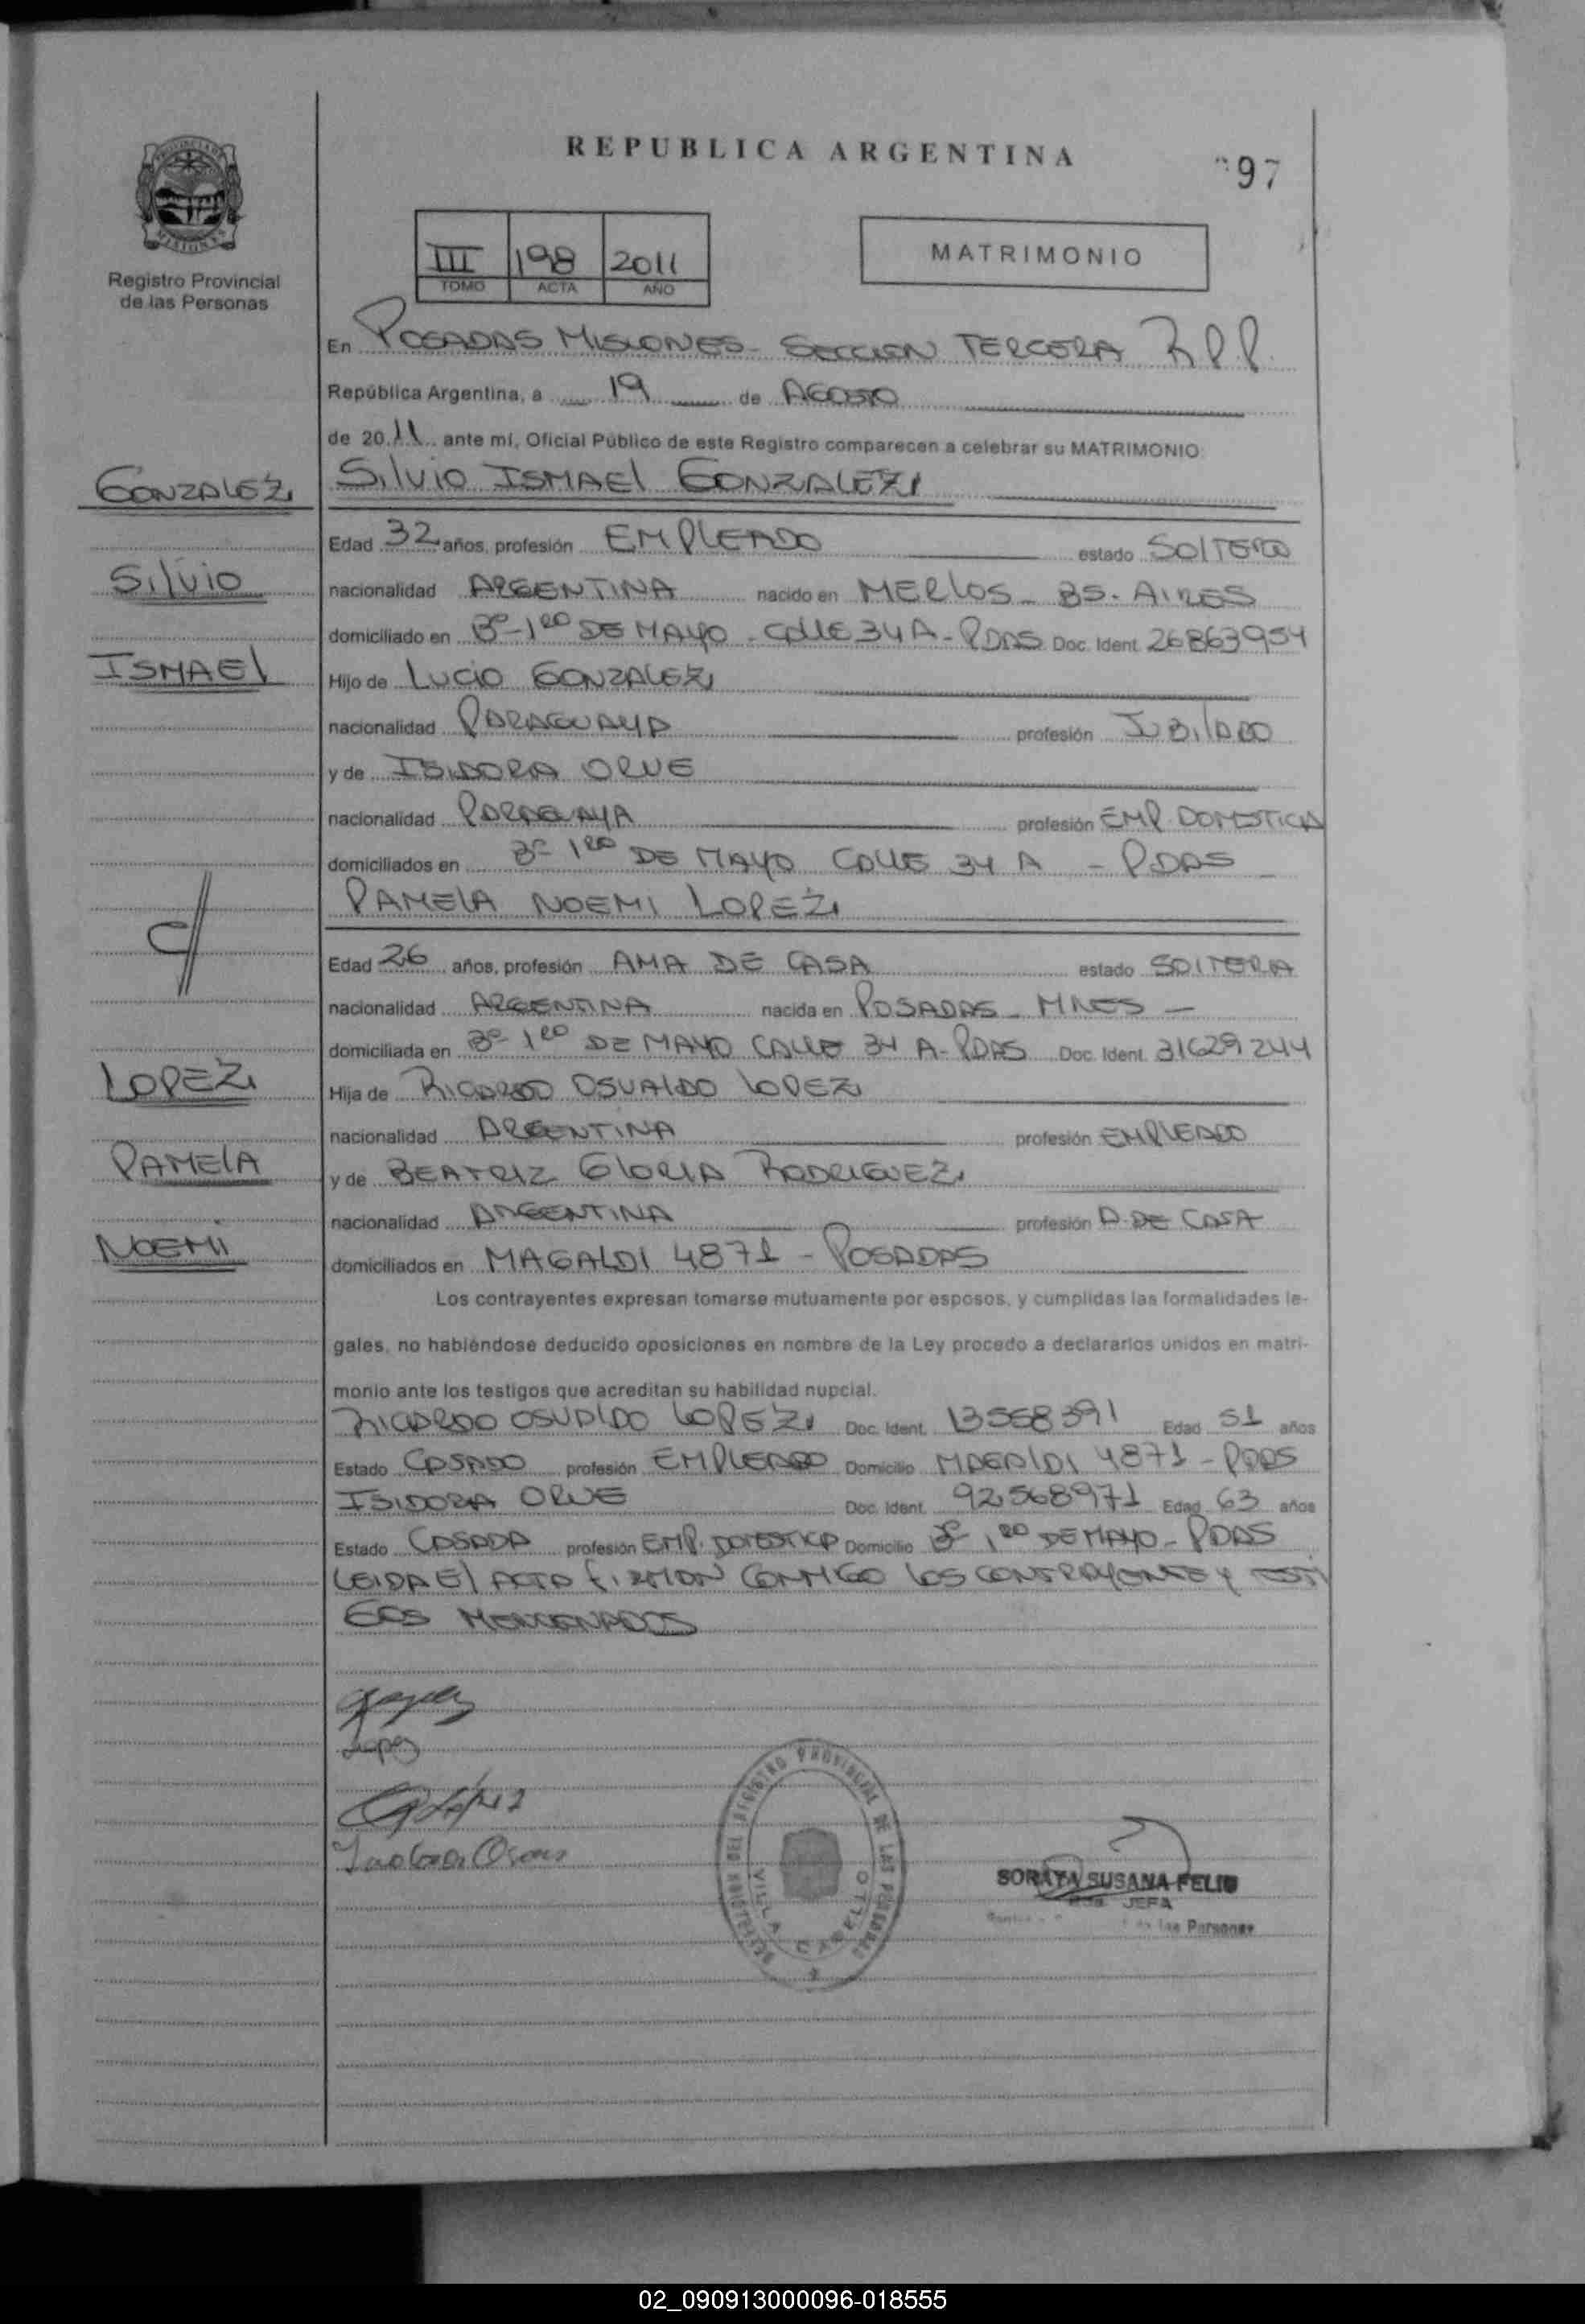 REPUBLICA ARGENTINA
97
PROVINCIA DE
MISIONES
Registro Provincial
de las Personas
III 198 2011
TOMO ACTA AÑO
MATRIMONIO
En POSADAS MISIONES - SECCION TERCERA R.P.P.
República Argentina, a 19 de AGOSTO
de 2011 ante mí, Oficial Público de este Registro comparecen a celebrar su MATRIMONIO:
GONZALEZ
Silvio ISMAEl GONZALEZ
Edad 32 años, profesión EMPLEADO estado SOlTERO
Silvio
nacionalidad ARGENTINA nacido en MERlOS - BS. AIRES
domiciliado en Bº 1ro DE MAYO - CALLE 34 A - PDAS Doc. Ident. 26863954
ISMAEl
Hijo de LUCIO GONZALEZ
nacionalidad PARAGUAYA profesión JUBIlADO
y de ISIDORA ORUE
nacionalidad PARAGUAYA profesión EMP. DOMESTICA
domiciliados en Bº 1ro DE MAYO CALLE 34 A - PDAS
PAMElA NOEMI LOPEZ
c/
Edad 26 años, profesión AMA DE CASA estado SOlTERA
nacionalidad ARGENTINA nacida en POSADAS - MNES -
domiciliada en Bº 1ro DE MAYO CALLE 34 A - PDAS Doc. Ident. 31629244
LOPEZ
Hija de RICARDO OSVAlDO lOPEZ
nacionalidad ARGENTINA profesión EMPLEADO
PAMElA
y de BEATRIZ GlORIA RODRIGUEZ
nacionalidad ARGENTINA profesión A. DE CASA
NOEMI
domiciliados en MAGALDI 4871 - POSADAS
Los contrayentes expresan tomarse mutuamente por esposos, y cumplidas las formalidades le-
gales, no habiéndose deducido oposiciones en nombre de la Ley procedo a declararlos unidos en matri-
monio ante los testigos que acreditan su habilidad nupcial.
RICARDO OSVAlDO LOPEZ Doc. Ident. 13558391 Edad 51 años
Estado CASADO profesión EMPLEADO Domicilio MAGAlDI 4871 - PDAS
ISIDORA ORUE Doc. Ident. 92568971 Edad 63 años
Estado CASADA profesión EMP. DOMESTICA Domicilio Bº 1ro DE MAYO - PDAS
LEIDA El ACTA FIRMAN CONMIGO lOS CONTRAYENTES Y TESTI
GOS MENCIONADOS
Lopez
REGISTRO PROVINCIAL DE LAS PERSONAS
VILLA CABELLO
SORAYA SUSANA FELIU
JEFA
de las Personas
02_090913000096-018555